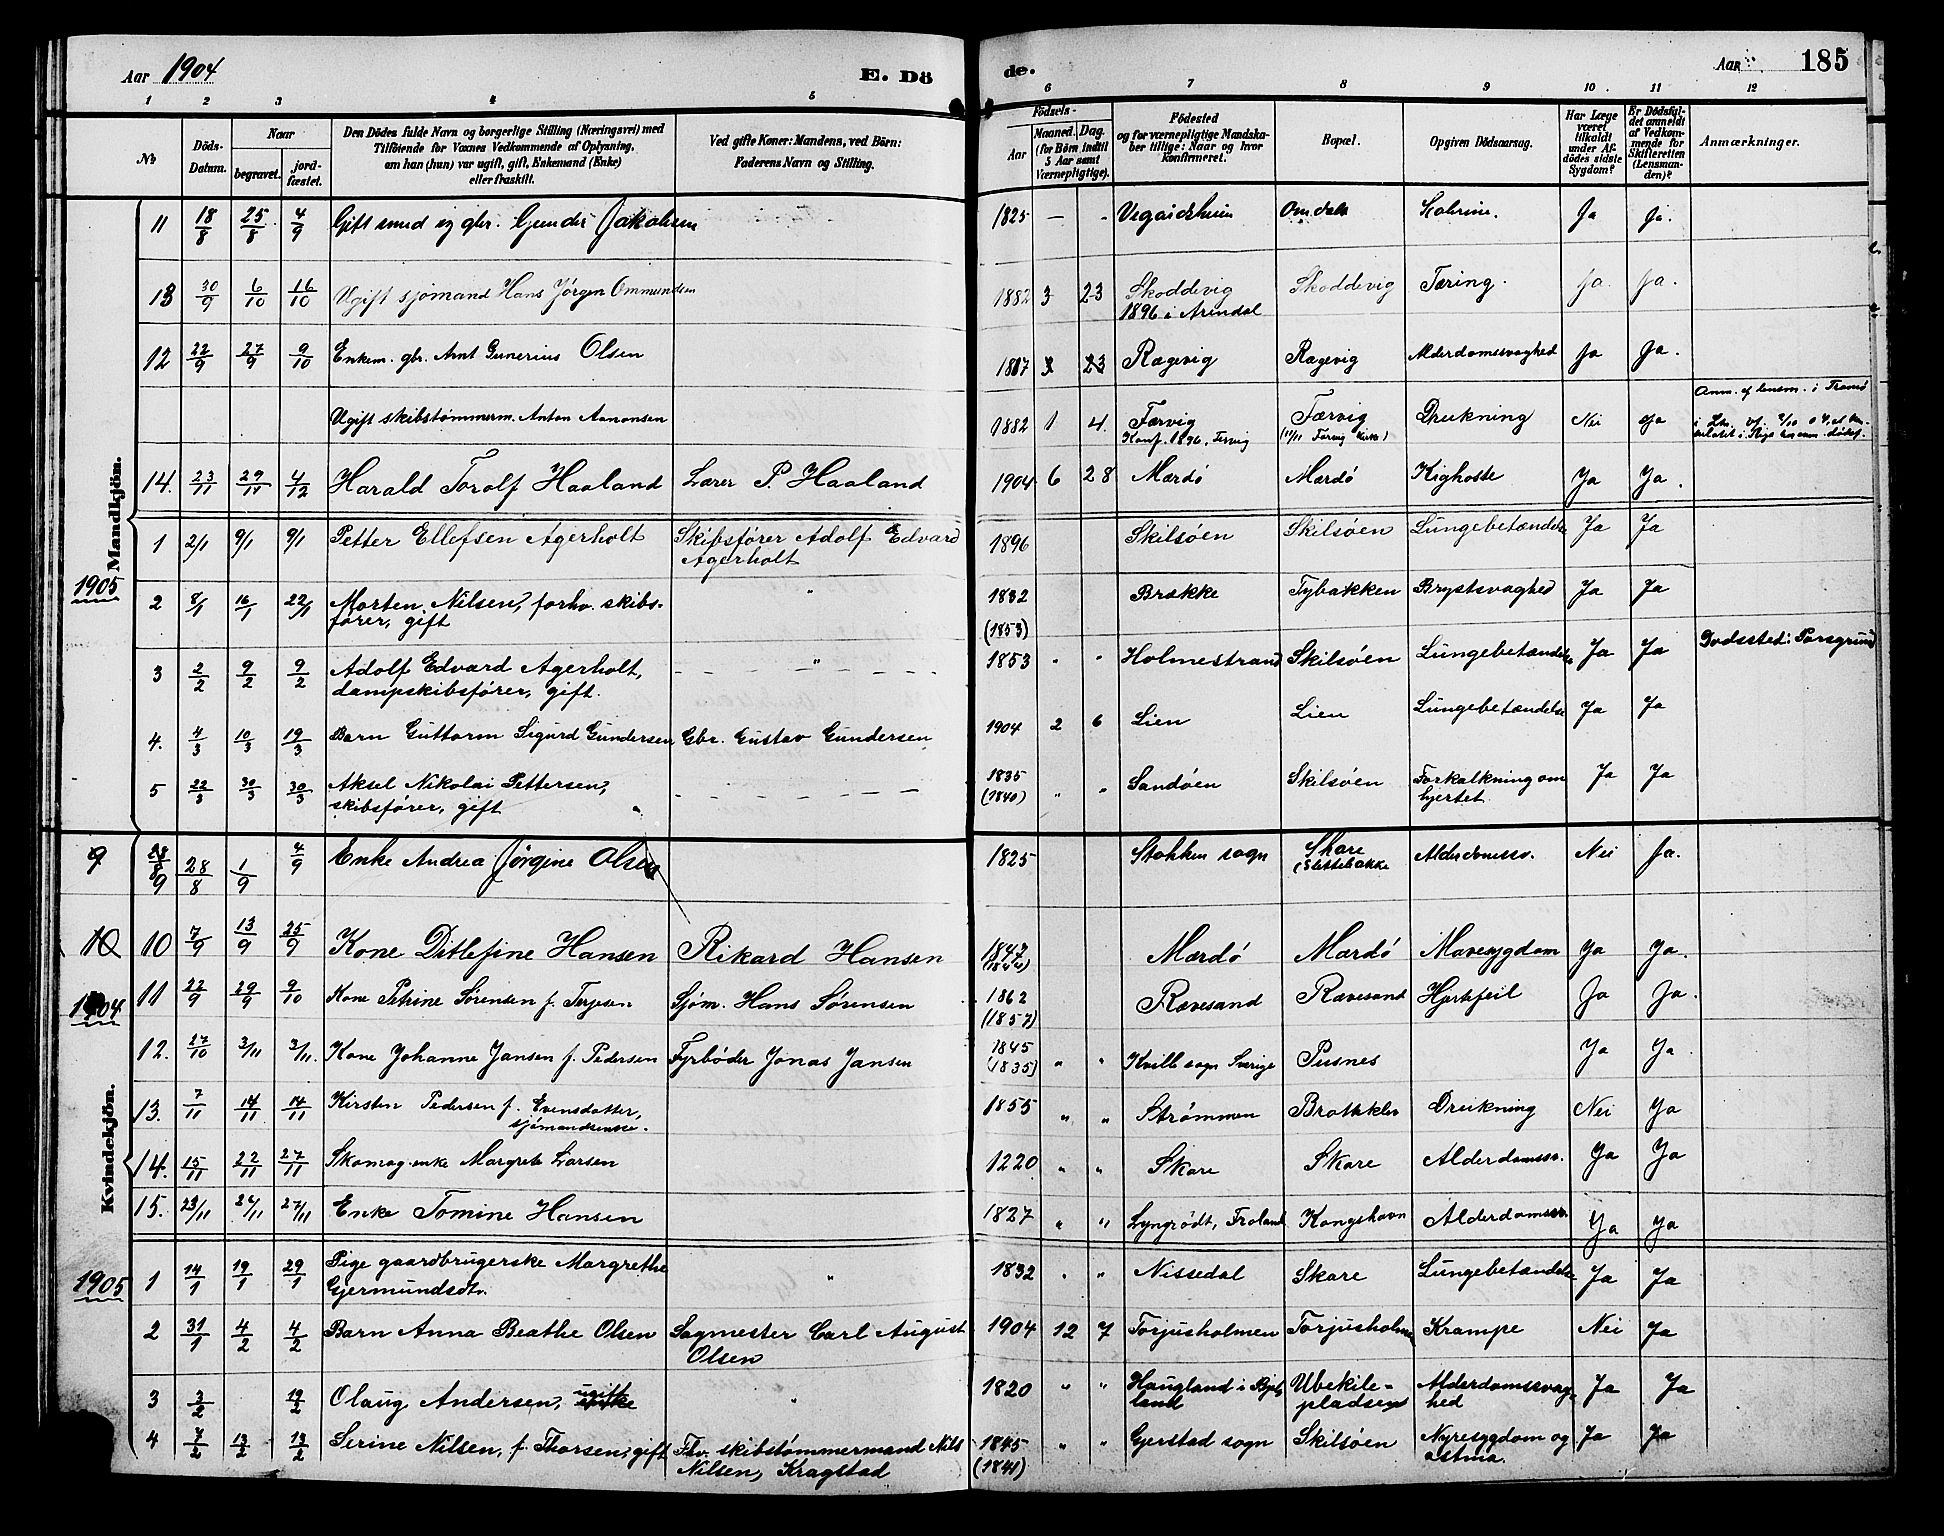 Aar 1904 E. Dö de. Aar 185
1 2 3 4 5 6 7 8 9 10 11 12
No Döds-Datum. Naar begravet. jord-fæstet. Den Dödes fulde Navn og borgerlige Stilling (Næringsvei) med Tilföiende for Voxnes Vedkommende af Oplysning, om han (hun) var ugift, gift, Enkemand (Enke) eller fraskilt. Ved gifte Koner: Mandens, ved Börn: Faderens Navn og Stilling. Födsels- Aar Maaned. Dag. (for Börn indtil 5 Aar samt Værnepligtige). Födested og for værnepligtige Mandskaber tillige: Naar og hvor konfirmeret. Bopæl. Opgiven Dödsaarsag. Har Læge været tilkaldt under Afdödes sidste Sygdom? Er Dödsfaldet anmeldt af Vedkommende for Skifteretten (Lensmanden)? Anmærkninger.
Mandkjön.
11 18/8 25/8 4/9 Gift smed og gbr. Gunder Jakobsen 1825 — " Omdal Ja Ja.
13 30/9 6/10 16/10 Ugift sjømand Hans Jørgen Ommundsen 1882 3 23 Skoddevig Skoddevig Tæring. Ja. Ja.
1896 i Arendal
12 22/9 27/9 9/10 Enkem. gbr. Arnt Gunerius Olsen 1817 3 23 Rægevig Rægevig Alderdomssvaghed Ja Ja.
Ugift skibstømmerm. Anton Aanonsen 1882 1 4. Færvig Færvig Drukning Nei Ja Anm. af lensm. i Tromø
Konf. 1896, Færvig
14. 23/11 29/11 4/12 Harald Torolf Haaland Lærer P. Haaland 1904 6 28 Mærdø Mærdø Kighoste Ja Ja.
1905 1 2/1 9/1 9/1 Petter Ellefsen Agerholt Skibsfører Adolf Edvard 1896 Skilsøen Skilsøen Lungebetændelse Ja Ja
Agerholt
2 8/1 16/1 22/1 Morten Nilsen, forhv. skibs- " 1832 Brække Tybakken Brystsvaghed Ja Ja
fører, gift (1853)
3 2/2 9/2 9/2 Adolf Edvard Agerholt, — " — 1853 " " Holmestrand Skilsøen Lungebetændelse Ja Ja Dødssted: Porsgrund
dampskibsfører, gift.
4. 4/3 10/3 19/3 Barn Guttorm Sigurd Gundersen Gbr. Gustav Gundersen 1904 2 6 Lien Lien Lungebetændelse Ja Ja
5 22/3 30/3 30/3 Aksel Nikolai Pettersen, — — — 1835 " " Sandøen Skilsøen Forkalkning om Ja Ja
skibsfører, gift (1840) hjertet.
Kvindekjön.
9 9 28/8 1/9 4/9 Enke Andrea Jørgine Olsen 1825 Stokken sogn Skare Alderdomssv. Nei Ja.
10 10 7/9 13/9 25/9 Kone Ditlefine Hansen Rikard Hansen 1847 Mærdø Mærdø Mavesygdom Ja Ja.
1904 11 22/9 29/9 9/10 Kone Petrine Sørensen f. Terjesen Sjøm. Hans Sørensen 1862 Rævesand Rævesand Hjertefeil Ja Ja.
(1857)
12. 27/10 3/11 3/11. Kone Johanne Jansen f. Pedersen Fyrbøder Jonas Jansen 1845 " " Kville sogn Sverige Pusnes Ja Ja
(1835)
13. 7/11 14/11 14/11 Kirsten Pedersen f. Evensdatter, 1855 " " Strømmen Bratteklev Drukning Nei Ja
14. 15/11 22/11 27/11 Skomag. enke Margrete Larsen 1220 " " Skare Skare Alderdomssv. Ja Ja
15. 23/11 26/11 27/11 Enke Tomine Hansen 1827 " " Lyngrødt, Froland Kongshavn Alderdomssv. Ja Ja
1905 1 14/1 19/1 29/1 Pige gaardbrugerske Margrethe " 1832 " " Nissedal Skare Lungebetændelse Ja Ja
Gjermundsdtr.
2 31/1 4/2 4/2 Barn Anna Beathe Olsen Sagmester Carl August 1904 12 7 Torjusholmen Torjusholmen Krampe Nei Ja
Olsen
3 3/2 19/2 Olaug Andersen, ugift " 1820 " " Haugland i Bygland Ubekile- Alderdomssvag- Ja Ja
pladsen hed
4 7/2 13/2 13/2 Serine Nilsen, f. Thorsen, gift Fhv. skibstømmermand Nils 1845 " " Gjerstad sogn Skilsøen Nyresygdom og Ja Ja
Nilsen, Kragstad (1841) astma.